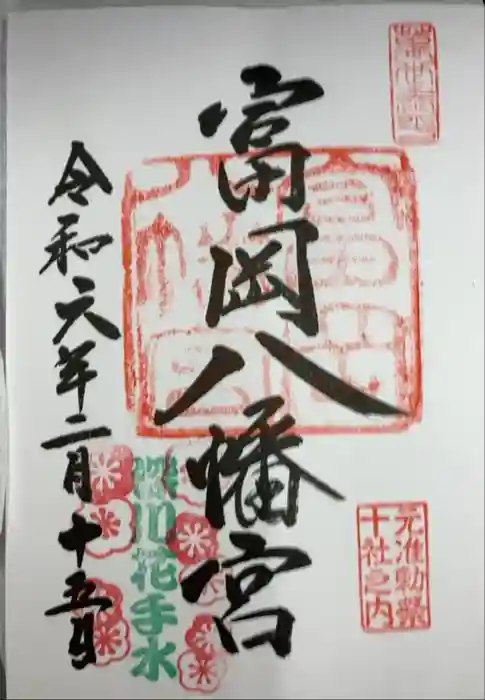 富岡八幡宮
元准勅祭
十社之内
深川花手水
令和六年二月十五日